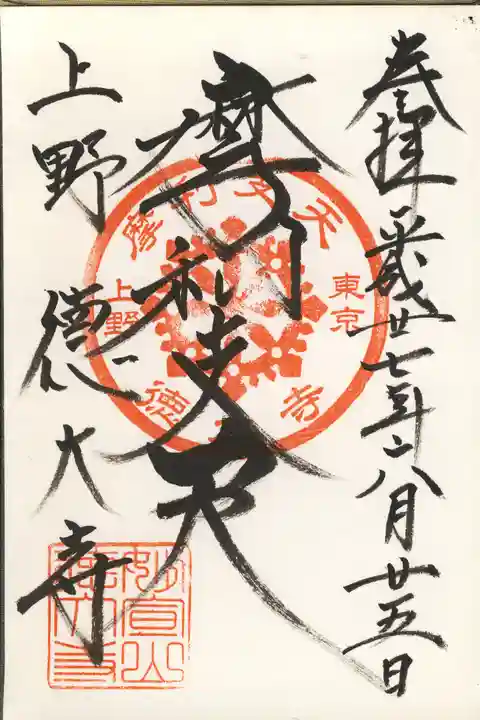 奉拝 平成廿七年八月廿五日
摩利支天
上野 徳大寺
摩利支天
東京
上野
徳大寺
妙宣山
徳大寺